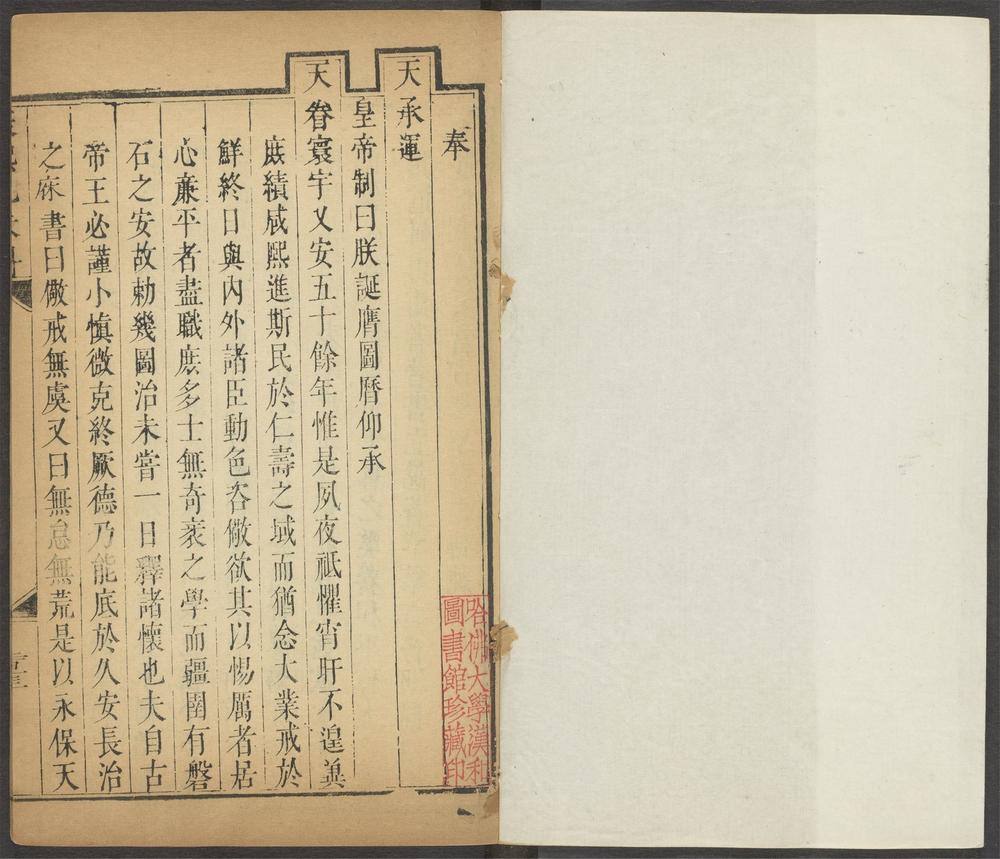 奉
天承運
皇帝制曰朕誕膺圖曆仰承
天眷寰宇乂安五十餘年惟是夙夜祗懼宵旰不遑冀
庶績咸熙進斯民於仁壽之域而猶念大業戒於
鮮終日與內外諸臣動色咨儆欲其以惕厲者居
心亷平者盡職庶多士無奇衺之學而疆圉有磐
石之安故勅幾圖治未嘗一日釋諸懷也夫自古
帝王必謹小慎微克終厥德乃能底於久安長治
之庥書曰儆戒無虞又曰無怠無荒是以永保天
哈佛大學漢和
圖書館珍藏印